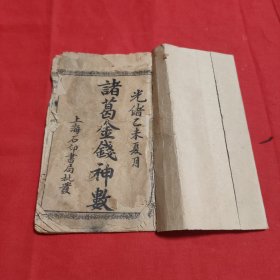 光緒乙未夏月
諸葛金錢神數
上海石印書局批發